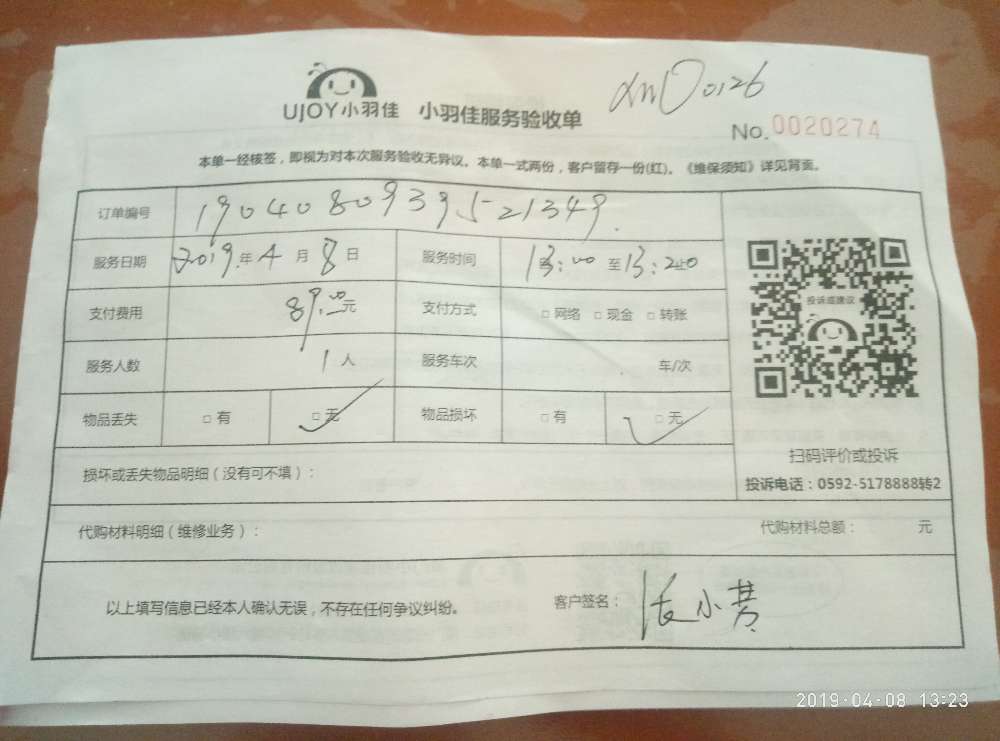 UJOY小羽佳 小羽佳服务验收单
No. 0020274
本单一经核签，即视为对本次服务验收无异议。本单一式两份，客户留存一份(红)。《维保须知》详见背面。
订单编号 1904080939521349
服务日期 2019年4月8日 服务时间 13:00至13:20
支付费用 89.00元 支付方式 □网络 □现金 □转账
投诉或建议
服务人数 1人 服务车次 车/次
物品丢失 □有 □无 物品损坏 □有 □无
扫码评价或投诉
损坏或丢失物品明细（没有可不填）：
投诉电话：0592-5178888转2
代购材料明细（维修业务）： 代购材料总额： 元
以上填写信息已经本人确认无误，不存在任何争议纠纷。 客户签名：
2019-04-08 13:23